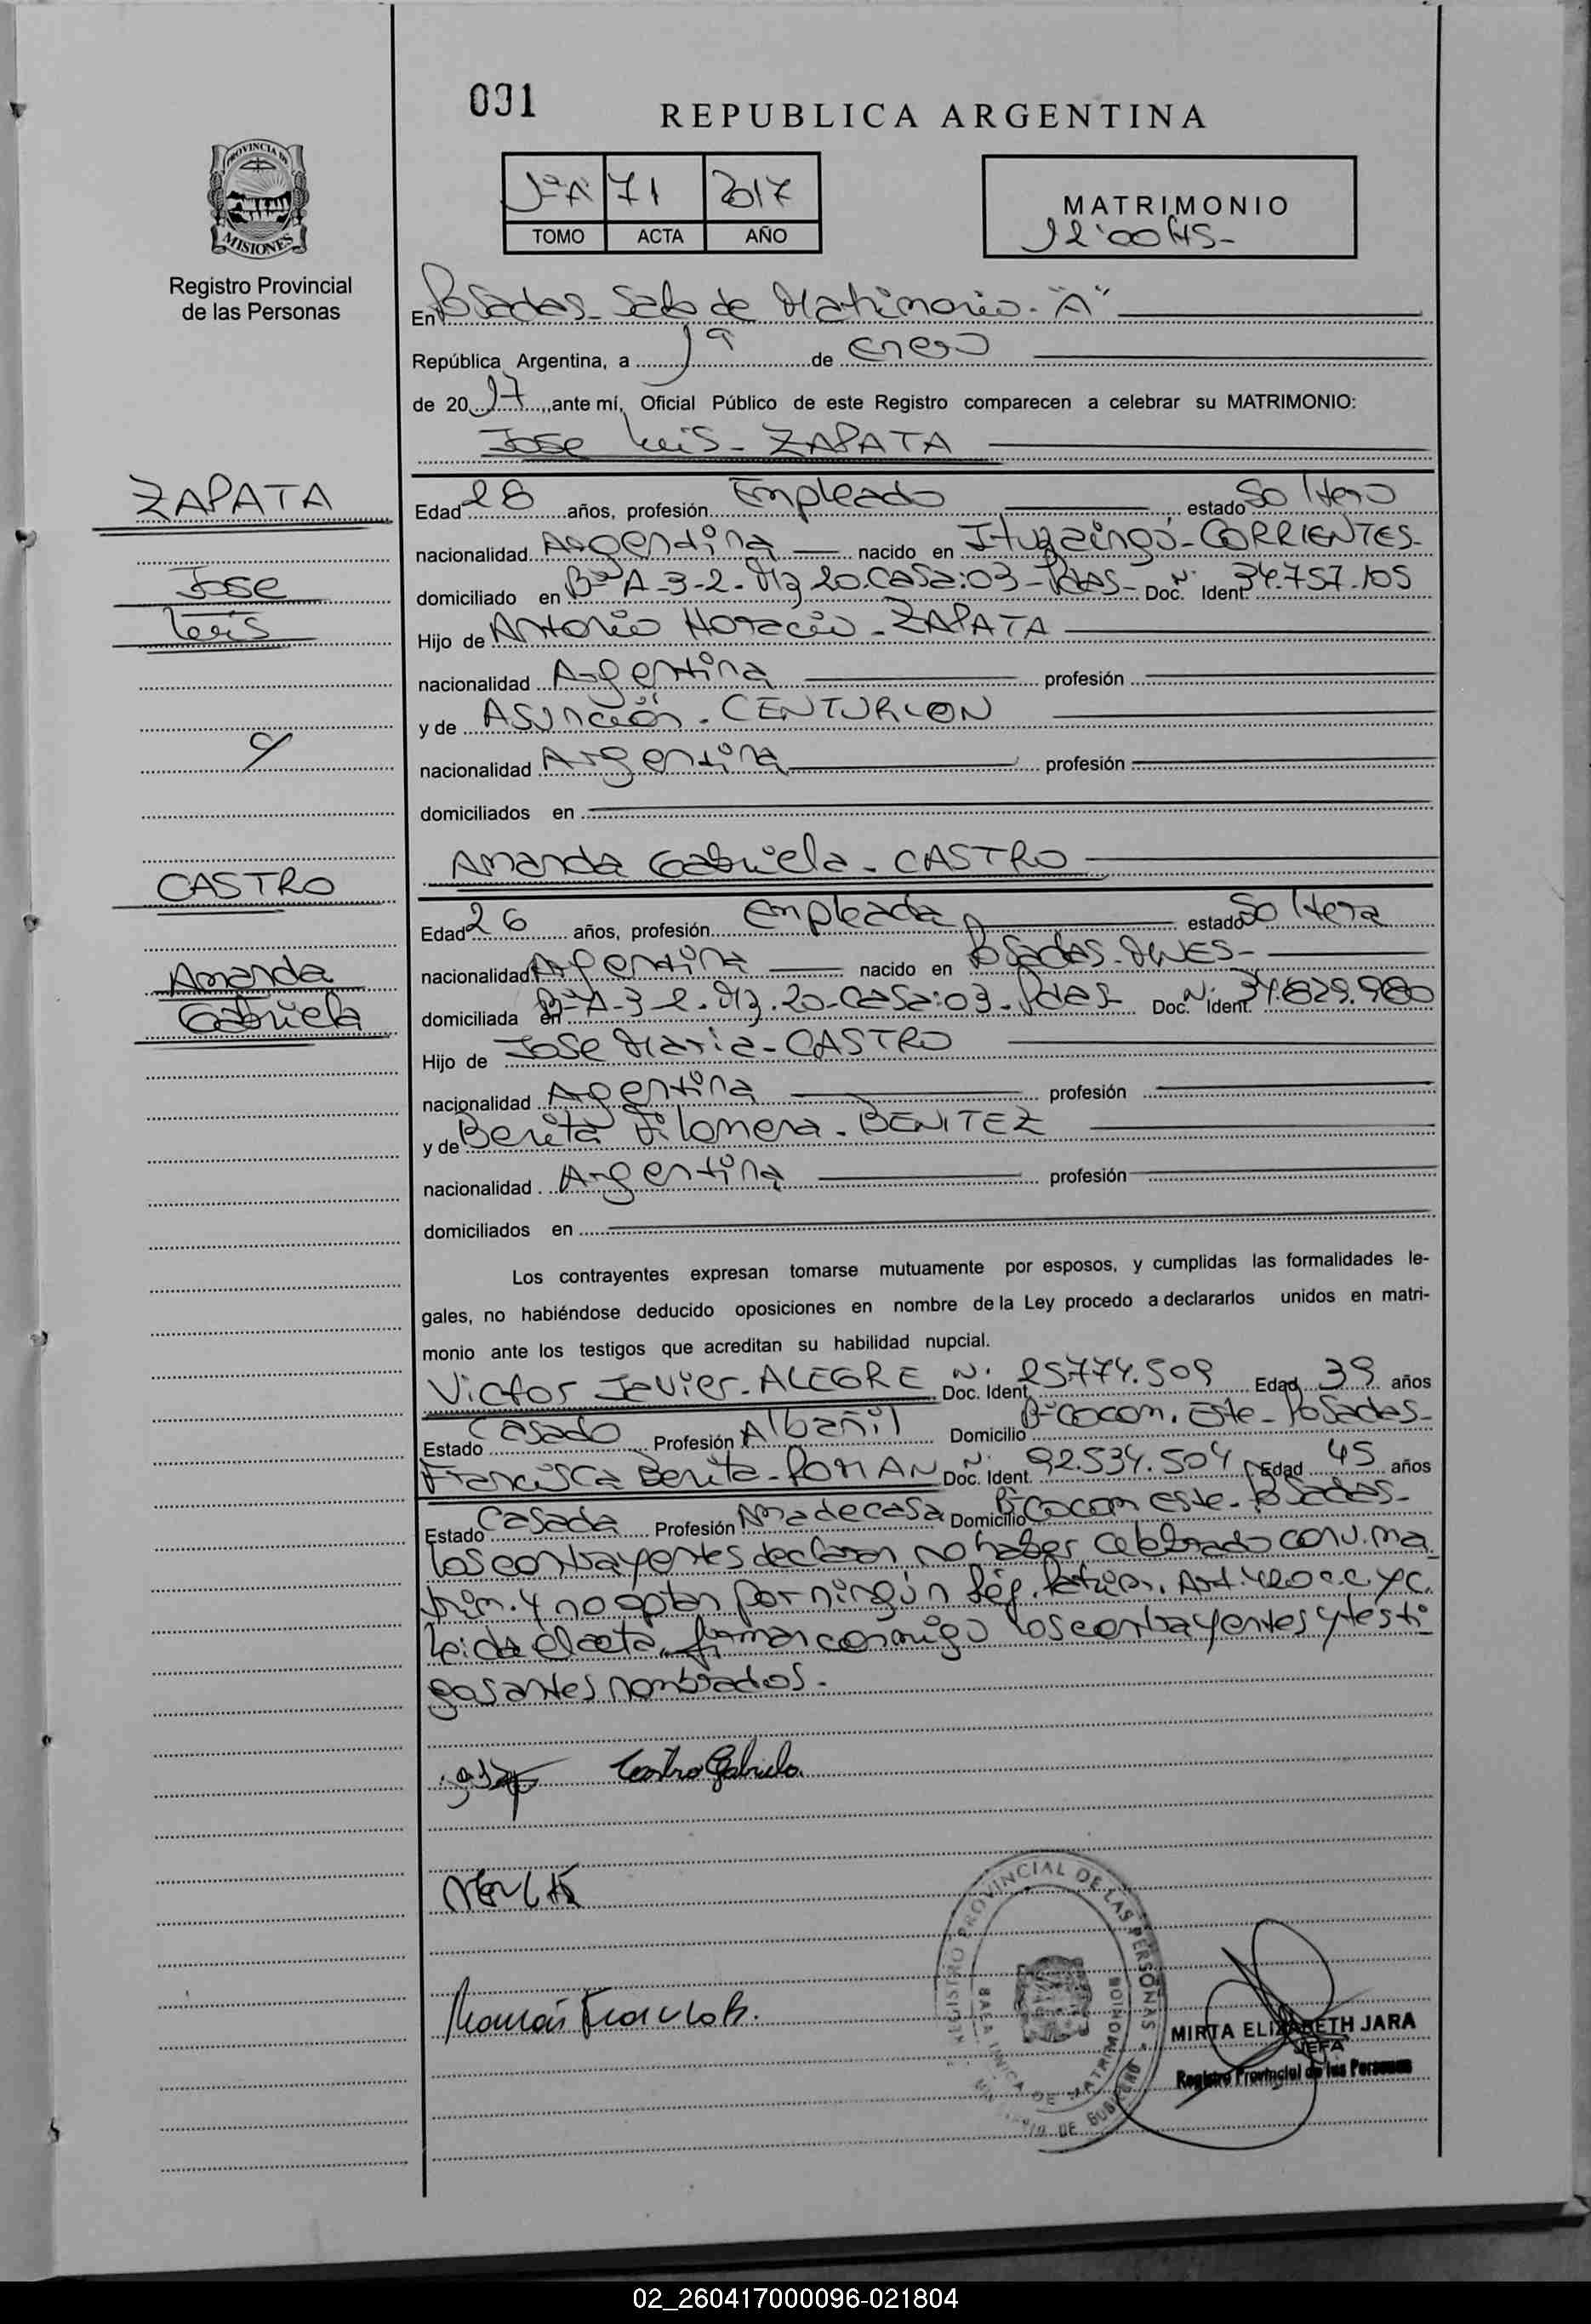 091
REPUBLICA ARGENTINA
PROVINCIA DE
MISIONES
Registro Provincial
de las Personas
1º"A" 71 2017
TOMO ACTA AÑO
MATRIMONIO
12:00 HS-
En Posadas- Sala de Matrimonio- "A"
República Argentina, a 1º de enero
de 2017, ante mí, Oficial Público de este Registro comparecen a celebrar su MATRIMONIO:
Jose Luis- ZAPATA
ZAPATA
Jose
Luis
Edad 28 años, profesión Empleado estado Soltero
nacionalidad Argentina nacido en Ituzaingó- CORRIENTES-
domiciliado en Bº A-3-2- Mz 20. Casa: 03- Pdas- Doc. Nº Ident. 34.757.105
Hijo de Antonio Horacio- ZAPATA
nacionalidad Argentina profesión
y de Asunción- CENTURION
y
nacionalidad Argentina profesión
domiciliados en
Amanda Gabriela- CASTRO
CASTRO
Amanda
Gabriela
Edad 26 años, profesión empleada estado Soltera
nacionalidad Argentina nacido en Posadas- MNES-
domiciliada en Bº A-3-2- Mz. 20- Casa: 03- Pdas- Doc. Nº Ident. 34.829.980
Hijo de Jose Maria- CASTRO
nacionalidad Argentina profesión
y de Benita Filomena- BENITEZ
nacionalidad Argentina profesión
domiciliados en
Los contrayentes expresan tomarse mutuamente por esposos, y cumplidas las formalidades le-
gales, no habiéndose deducido oposiciones en nombre de la Ley procedo a declararlos unidos en matri-
monio ante los testigos que acreditan su habilidad nupcial.
Victor Javier- ALEGRE Doc. Nº Ident. 25774.509 Edad 39 años
Estado Casado Profesión Albañil Domicilio Bº Cocom. Este- Posadas-
Francisca Benita- ROMAN Doc. Nº Ident. 92.534.504 Edad 45 años
Estado Casada Profesión Amadecasa Domicilio Bº Cocom Este- Posadas-
los contrayentes declaran no haber celebrado conv. ma
trim. y no optan por ningún Rég. Patrim. Art. 420 C.C y C.
Leída el acta, firman conmigo los contrayentes y testi
gos antes nombrados.
Castro Gabriela
REGISTRO PROVINCIAL DE LAS PERSONAS
DE MATRIMONIOS
MIRTA ELIZABETH JARA
JEFA
Registro Provincial de las Personas
02_260417000096-021804